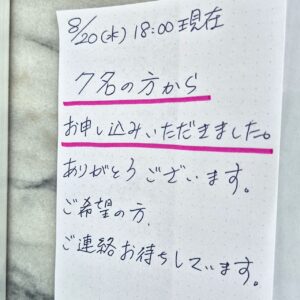 8/20(水) 18:00 現在
7名の方から
お申し込みいただきました。
ありがとうございます。
ご希望の方、
ご連絡お待ちしています。